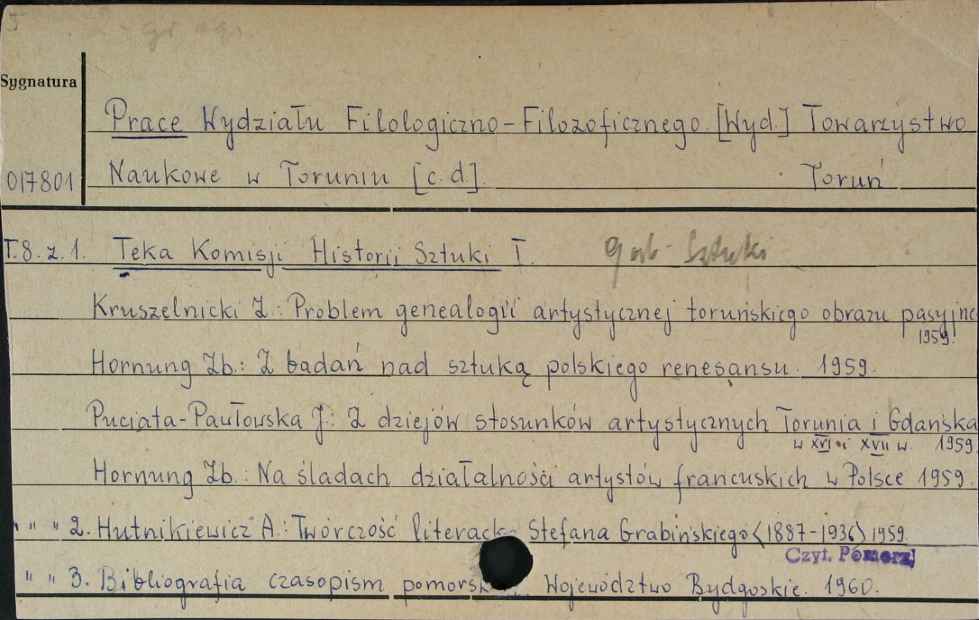 Sygnatura
Prace Wydziału Filologiczno-Filozoficznego. [Wyd.] Towarzystwo
017801 Naukowe w Toruniu [c.d.]. Toruń
T.8.z.1. Teka Komisji Historii Sztuki I. Gab. Sztuki
Kruszelnicki Z.: Problem genealogii artystycznej toruńskiego obrazu
1959.
Hornung Zb.: Z badań nad sztuką polskiego renesansu. 1959.
Puciata-Pawłowska J.: Z dziejów stosunków artystycznych Torunia i Gdańska
w XVI i XVII w. 1959
Hornung Zb.: Na śladach działalności artystów francuskich w Polsce 1959.
" " " 2. Hutnikiewicz A.: Twórczość Stefana Grabińskiego <1887-1936> 1959.
Czyt. Pomorz.
" " 3. Bibliografia czasopism Województwo Bydgoskie. 1960.